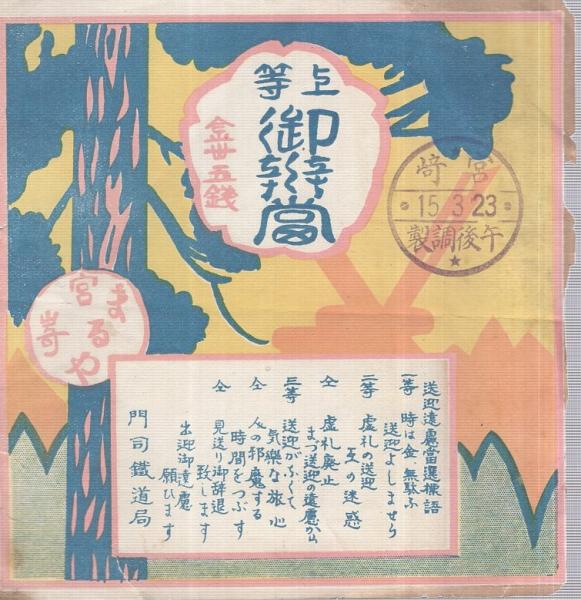 上等
御辨當
金卅五錢
宮崎
15.3.23
午後調製
まるや
宮崎
送迎遠慮當選標語
一等 時は金 無駄な
送迎よしませう
二等 虚礼の送迎
互の迷惑
仝 虚礼廃止
まづ送迎の遠慮から
三等 送迎がなくて
気樂な旅心
仝 人の邪魔する
時間をつぶす
仝 見送り御辞退
致します
出迎御遠慮
願ひます
門司鐵道局